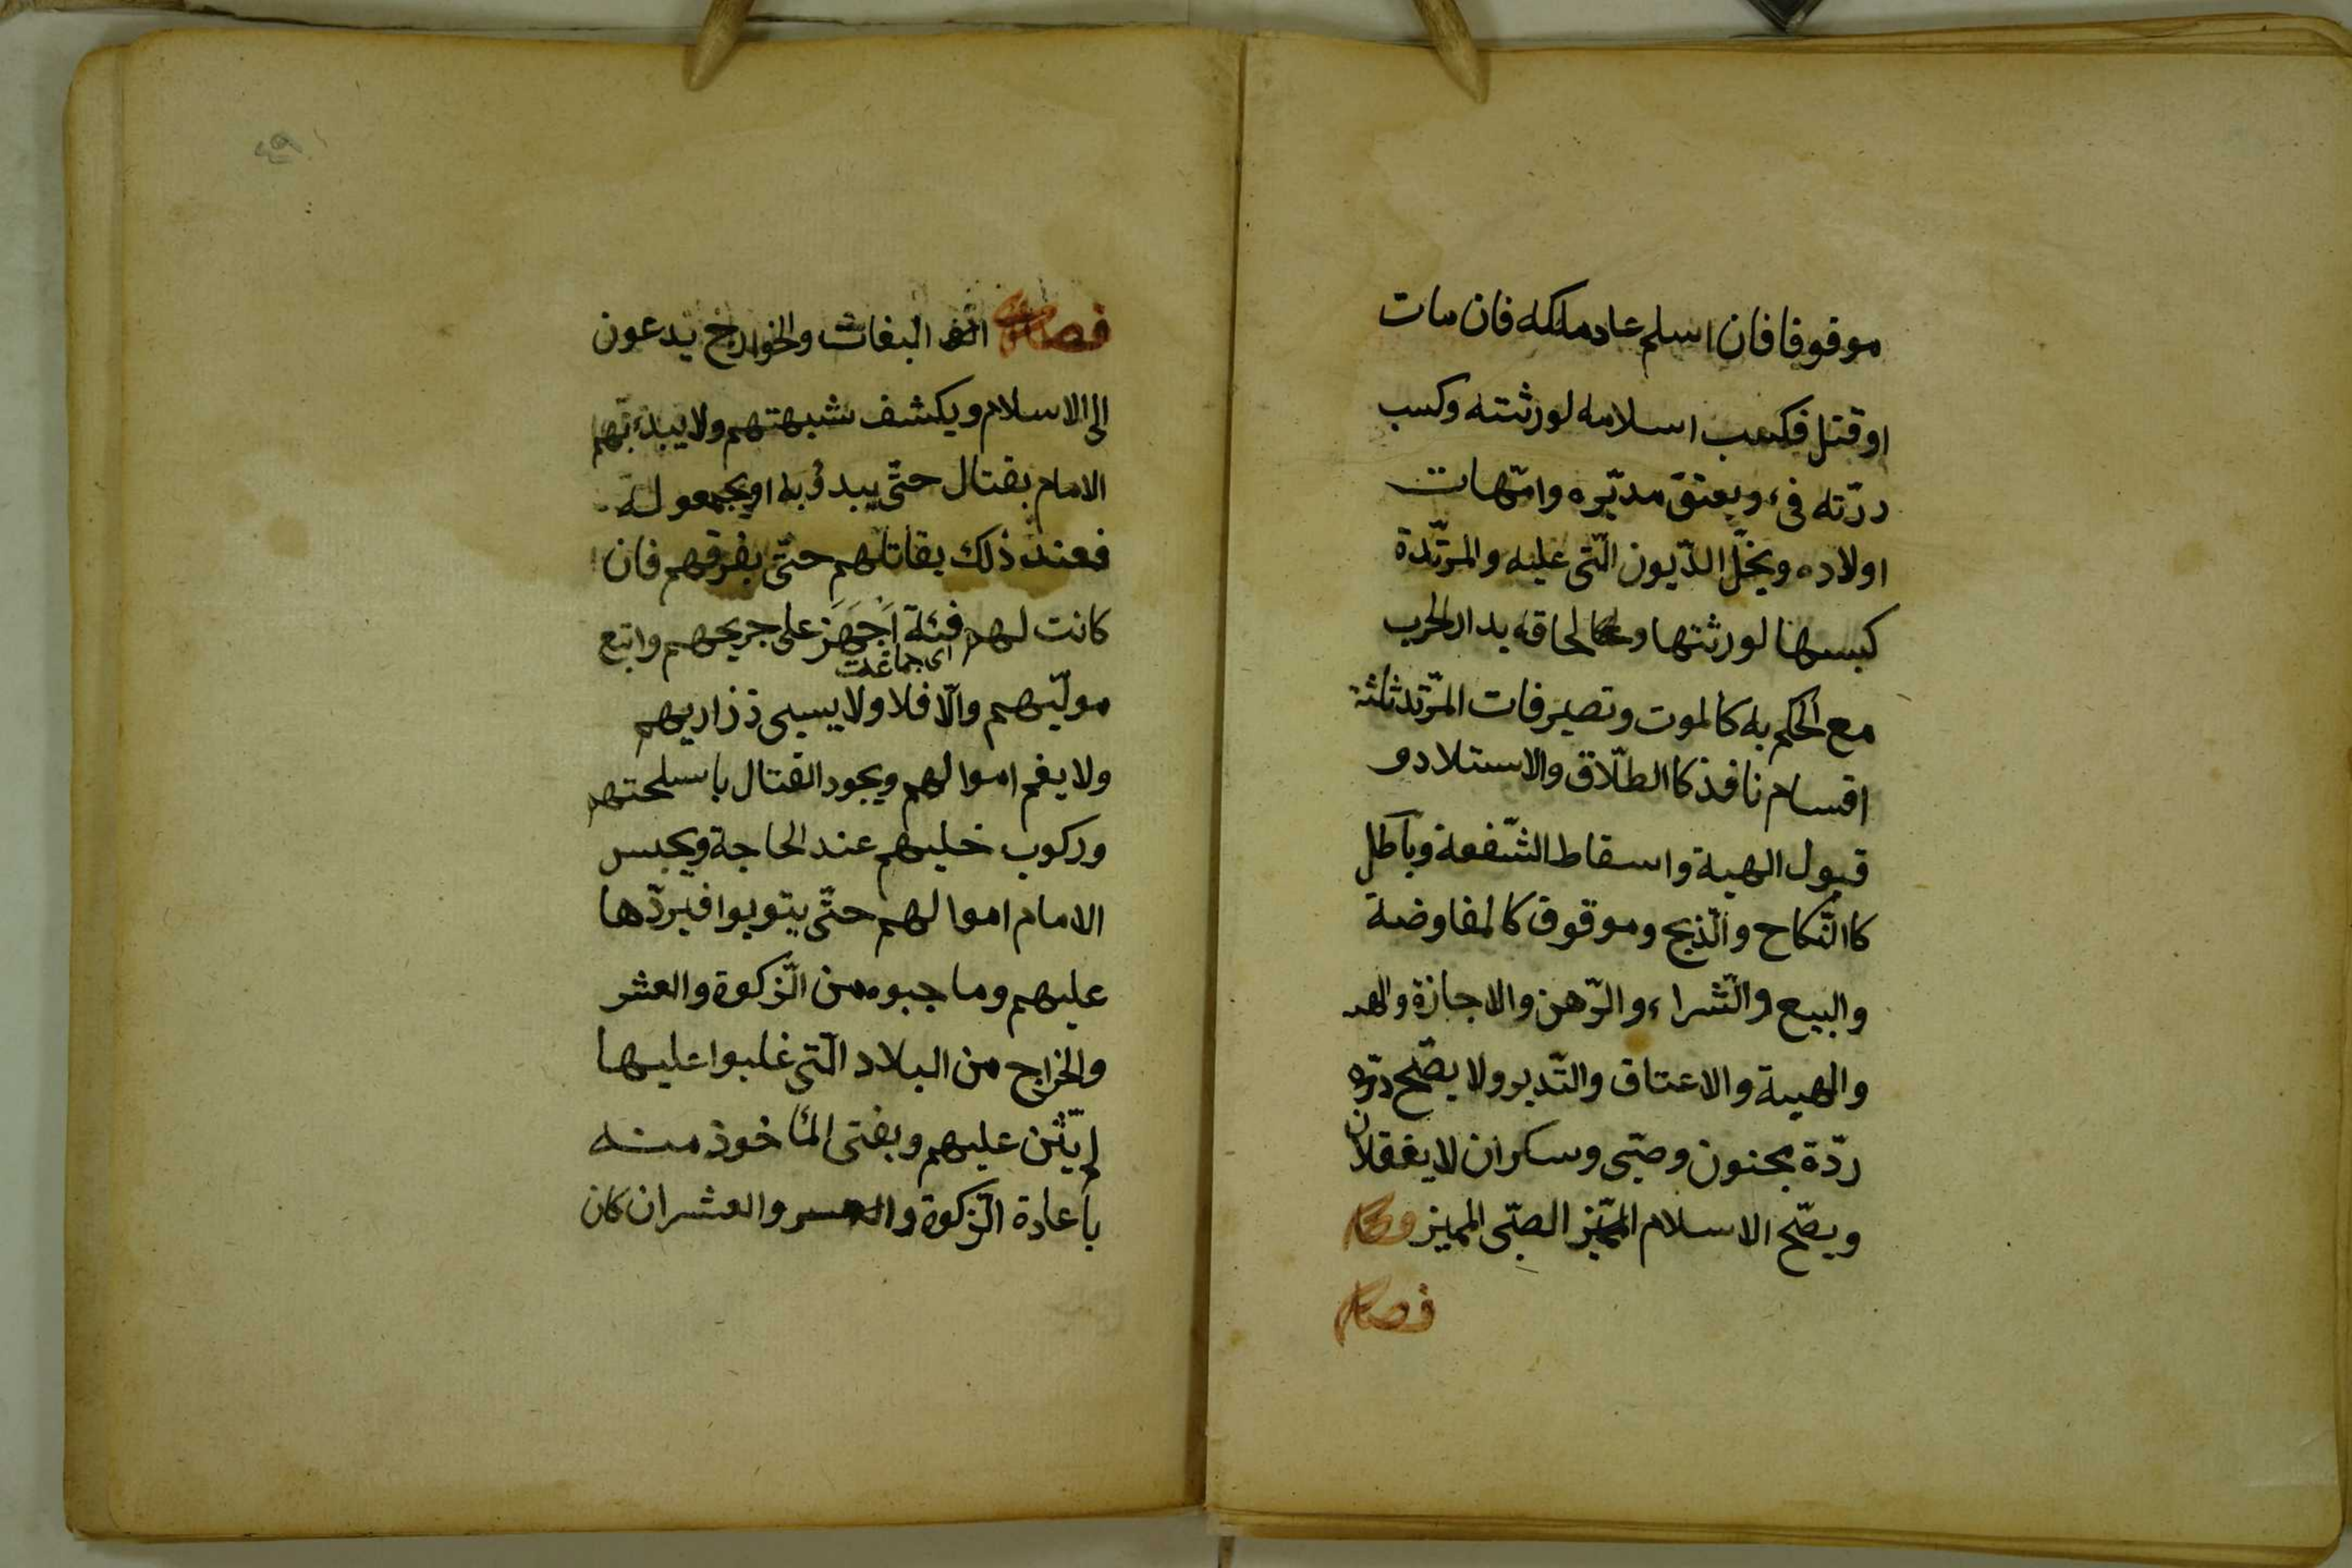 موقوفا فان اسلم عاد ملكه فان مات
او قتل فكسب اسلامه لورثته وكسب
ردّته فىء ويعتق مدبّره وامّهات
اولاده ويحلّ الدّيون الّتى عليه والمرتّدة
كسبها لورثتها ولحاقه بدار الحرب
مع الحكم به كالموت وتصيرفات المرّتد ثلثة
اقسام نافذ كا الطلّاق والاستلاد و
قبول الهبة واسقاط الشّفعة وباطل
كا النّكاح والّذبح وموقوف كالمفاوضة
والبيع والّشراء والرّهن والاجازة
والهبة والاعتاق والتّدبر ولا يصّح
ردّة مجنون وصبّى وسكران لا يعقلان
ويصّح الاسلام الصبّى المميز
فصل
فصل البغاث والخوارج يدعون
الى الاسلام ويكشف شبهتهم ولا يبدء بهم
الامام بقتال حتّى يبدؤ به او يجمعو له
فعند ذلك يقاتلهم حتّى يفرقهم فان
كانت لهم فئة اَجْهَزَ على جريحهم واتبع
اى جماعت
مولّيهم والّا فلا ولا يسبى ذزاريهم
ولا يغم اموالهم ويجود القتال باسلحتهم
وركوب خليهم عند الحاجة ويحبس
الامام اموالهم حتّى يتوبوا فيردّها
عليهم وما جبوه من الّزكوة والعشر
والخراج من البلاد الّتى غلبوا عليها
لم يثّن عليهم ويفتى المأخوذ منه
باعادة الّزكوة والعشر ان كان